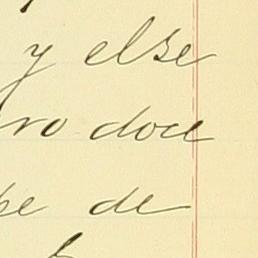 y else
ro doce
de